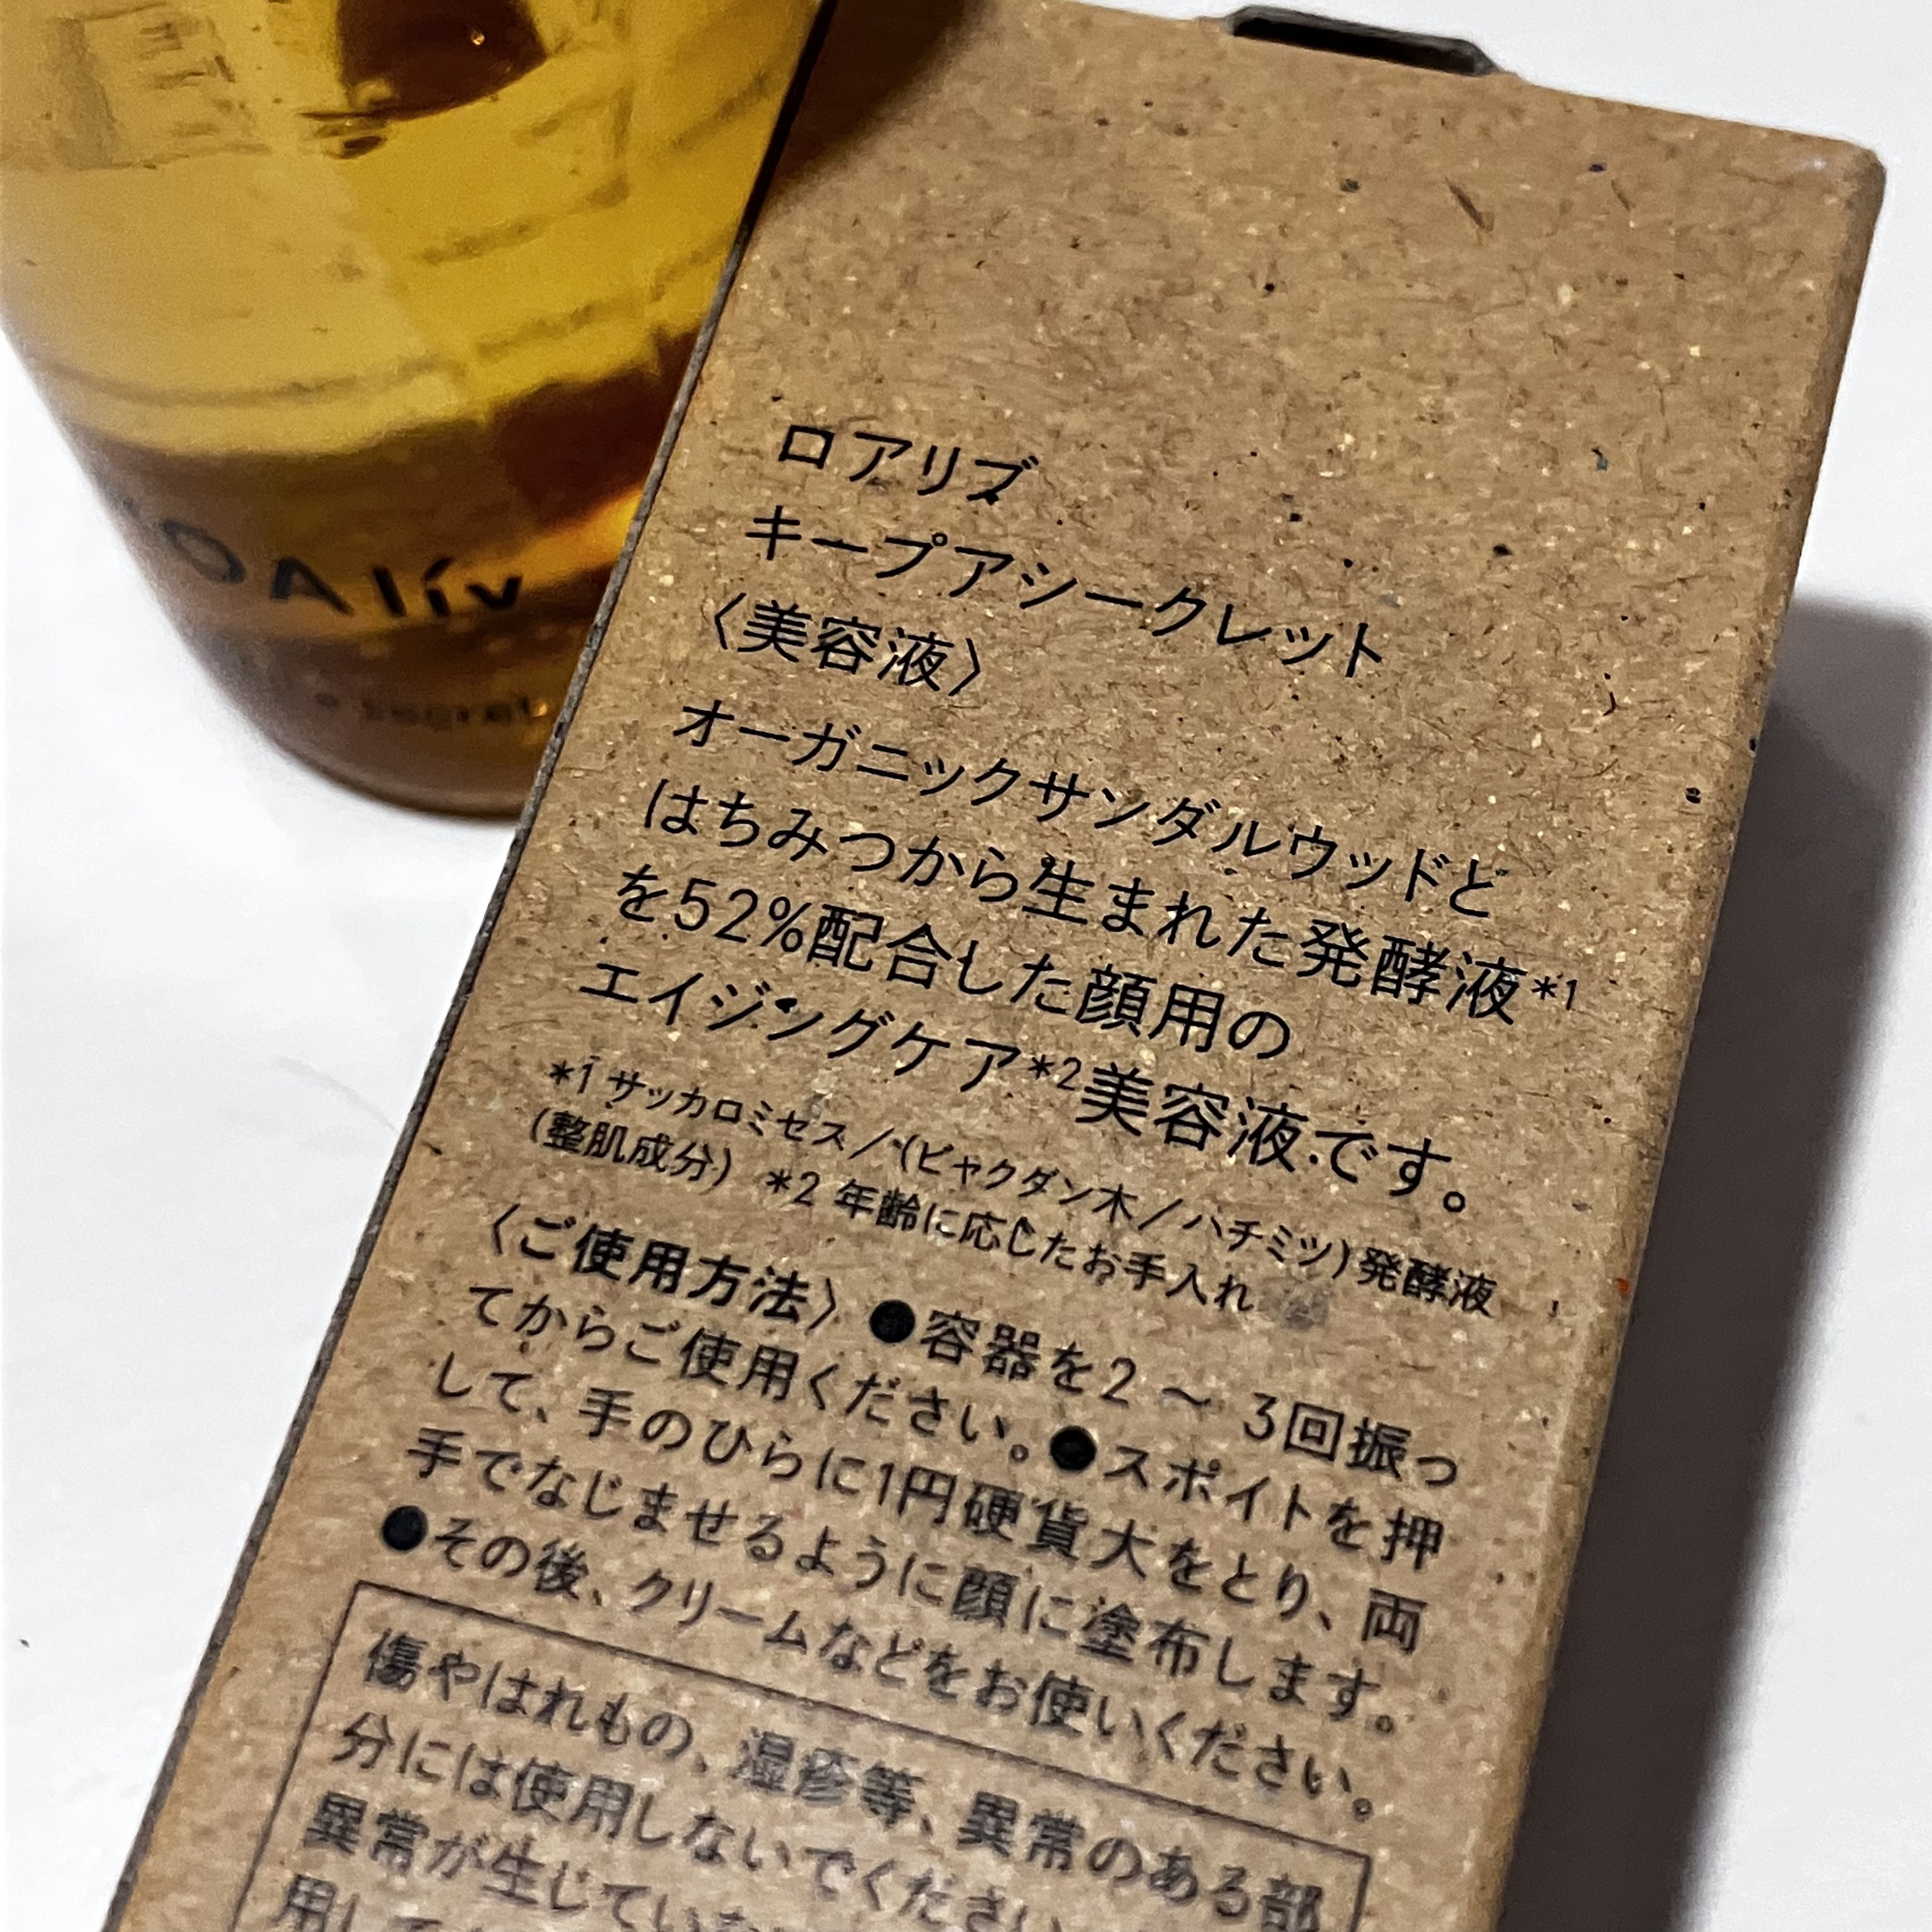 OAlív
secret
ロアリブ
キープアシークレット
〈美容液〉
オーガニックサンダルウッドと
はちみつから生まれた発酵液*1
を52%配合した顔用の
エイジングケア*2美容液です。
*1 サッカロミセス/(ビャクダン木/ハチミツ)発酵液
(整肌成分) *2 年齢に応じたお手入れ
〈ご使用方法〉●容器を2 ~ 3回振っ
てからご使用ください。●スポイトを押
して、手のひらに1円硬貨大をとり、両
手でなじませるように顔に塗布します。
●その後、クリームなどをお使いください。
傷やはれもの、湿疹等、異常のある部
分には使用しないでください
異常が生じていな
用して